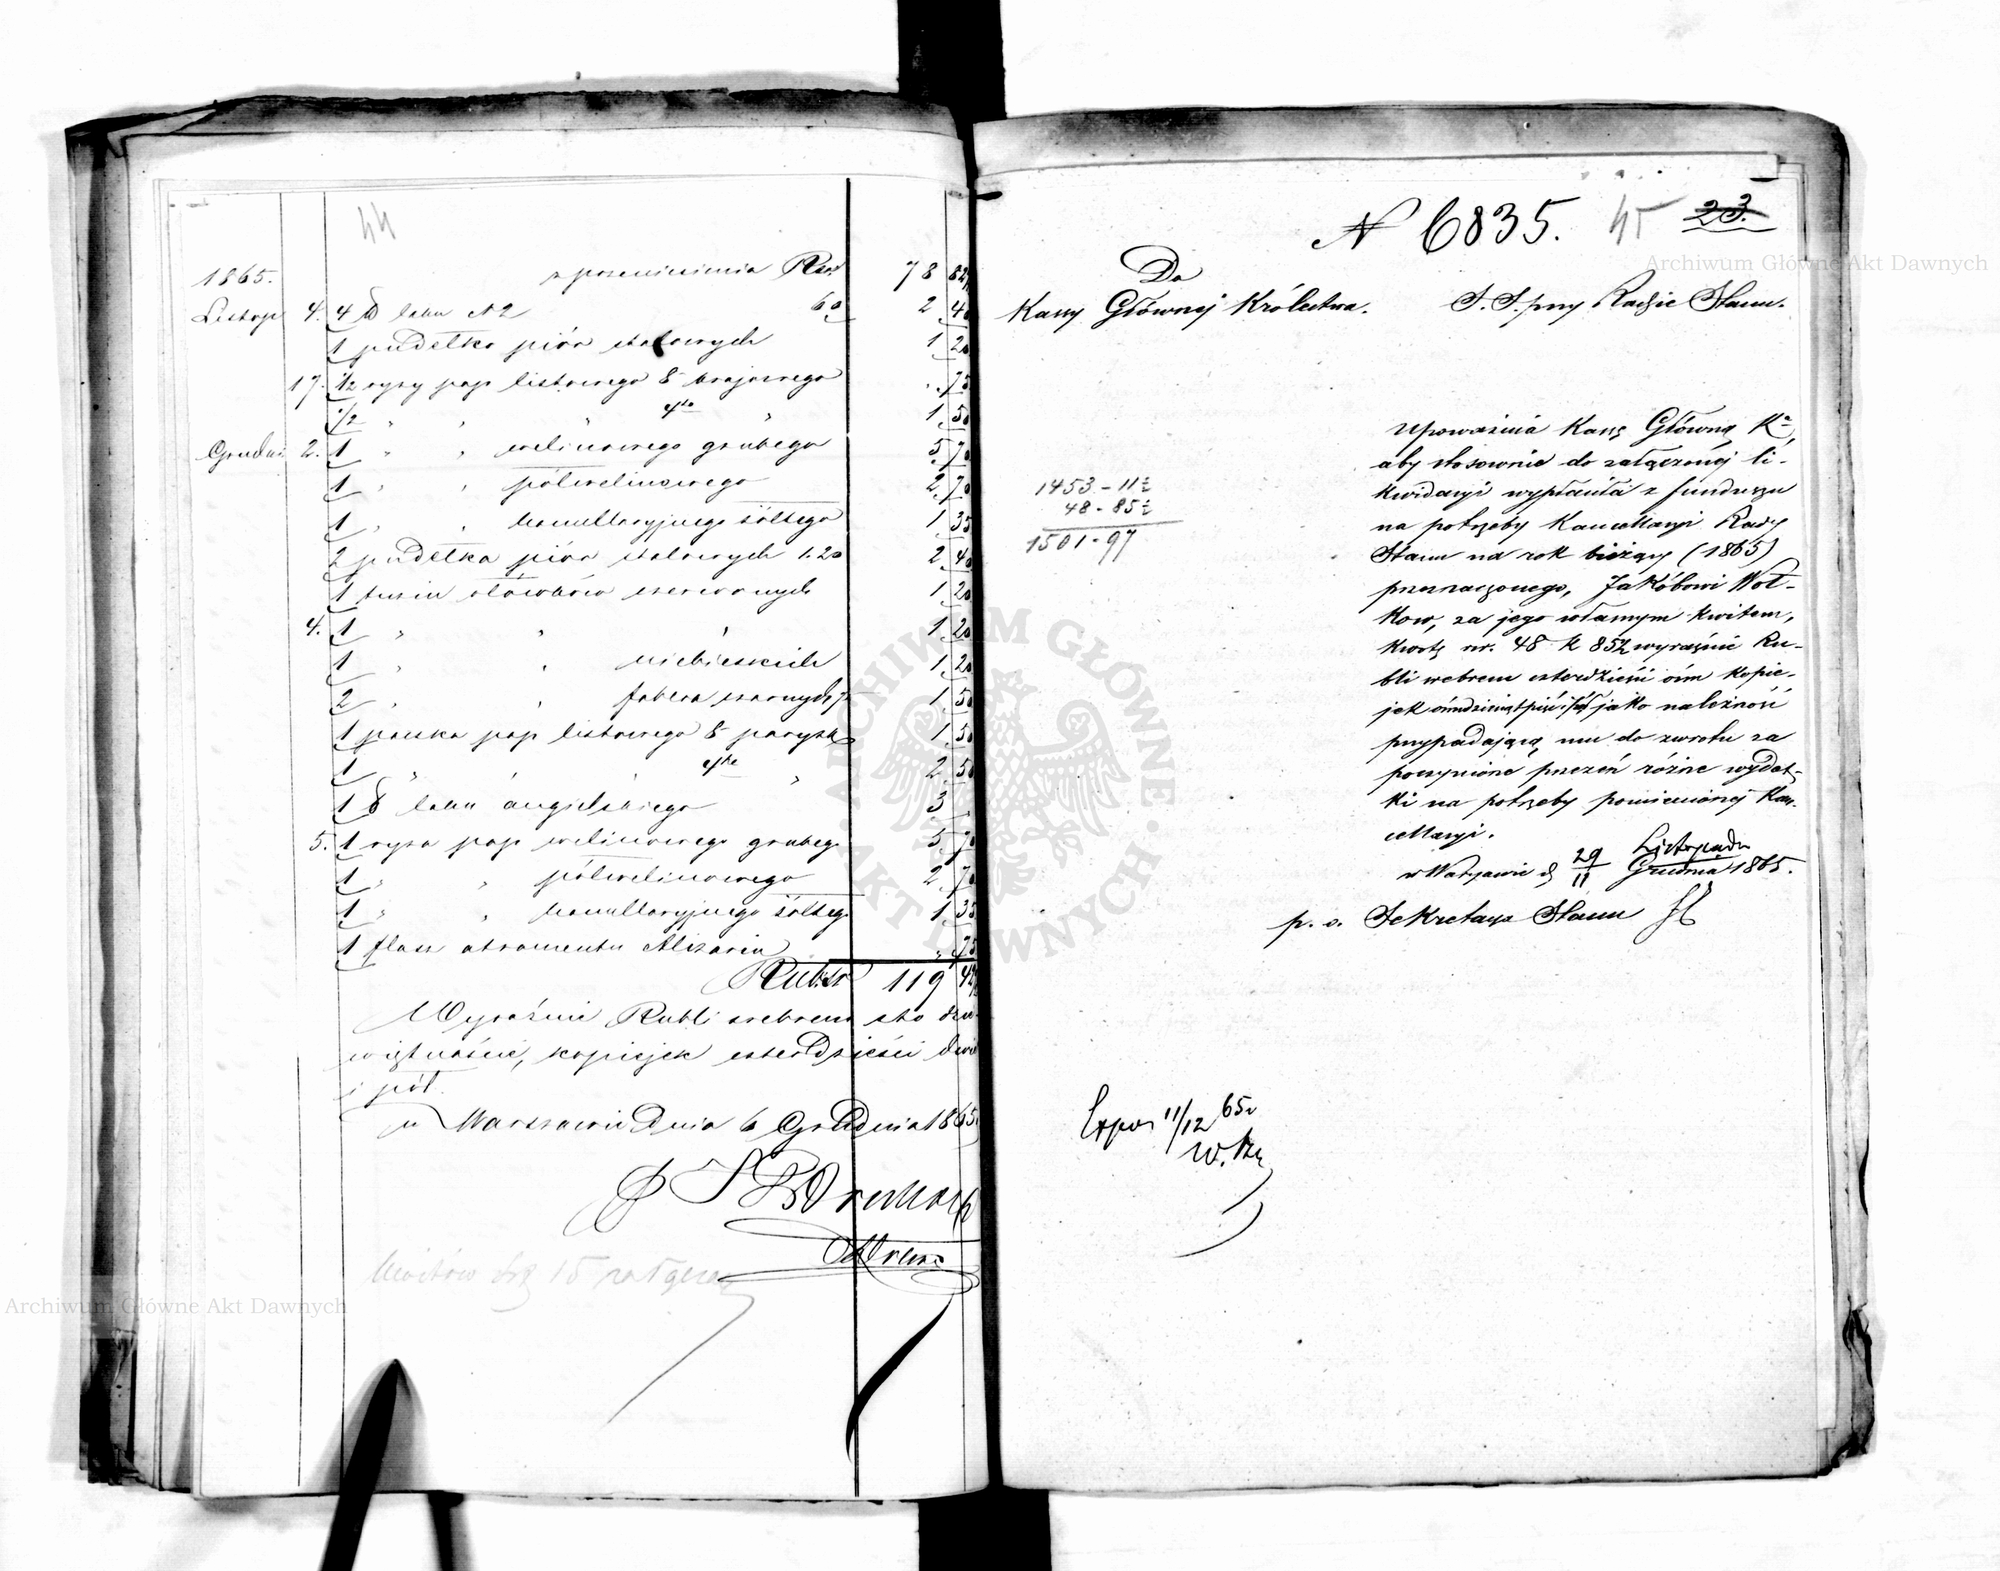 44
1865. z przeniesienia Rsr 78 82½
Listop 4. 4 ℔ laku N 2 60 2 40
1 pudełko piór stalowych 1 20
17. ½ ryzy pap listowego 8º krajowego . 75
½ " " " 4to " 1 50
Grudni 2. 1 " " welinowego grubego 5 70
1 " " półwelinowego 2 70
1 " " kancellaryjnego żółtego 1 35
2 pudełka piór stalowych 1.20 2 40
1 tuzin ołówków czerwonych 1 20
4. 1 " " " 1 20
1 " " niebieskich 1 20
2 " " Fabera czarnych 75 1 50
1 paczka pap listowego 8º parysk 1 50
1 " " " 4to " 2 50
1 ℔ laku angielskiego 3 "
5. 1 ryza pap welinowego grubeg 5 70
1 " " półwelinowego 2 70
1 " " kancellaryjnego żółteg 1 35
1 flasz atramentu Alizarin " 75
Rub.sr 119 42½
Wyraźnie Rubli srebrem sto dzie-
więtnaście, kopiejek czterdzieści dwie
i pół.
w Warszawie Dnia 6 Grudnia 1865.
Kwitów szt 15 załącza
N 6835. 45 23.
Do
Kassy Głównej Królestwa. S. S. przy Radzie Stanu.
1453 - 11½
48 - 85½
1501 - 97
Upoważnia Kassę Główną Kr.,
aby stosownie do załączonej li-
kwidacyi wypłaciła z funduszu
na potrzeby Kancellaryi Rady
Stanu na rok bieżący (1865)
przeznaczonego, Jakóbowi Woł-
kow, za jego własnym kwitem,
kwotę rsr. 48 k 85½ wyraźnie Ru-
bli srebrem czterdzieści ośm kopie-
jek ośmdziesiąt pięć i pół jako należność
przypadającą mu do zwrotu za
poczynione przezeń różne wydat-
ki na potrzeby pomienionej Kan-
cellaryi.
w Warszawie d. 29/11 Listopada/Grudnia 1865.
p. o. Sekretarza Stanu
Expos 11/12 65 r
Archiwum Główne Akt Dawnych
Archiwum Główne Akt Dawnych
ARCHIWUM GŁÓWNE · AKT DAWNYCH ·